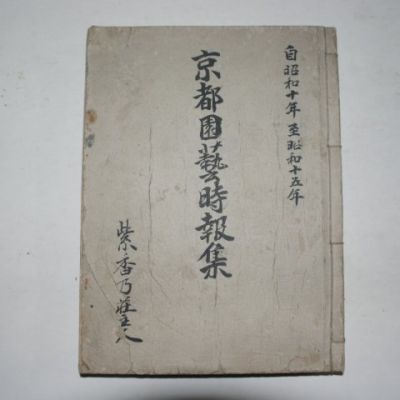 自昭和十年至昭和十五年
京都園藝時報集
紫香乃荘主人